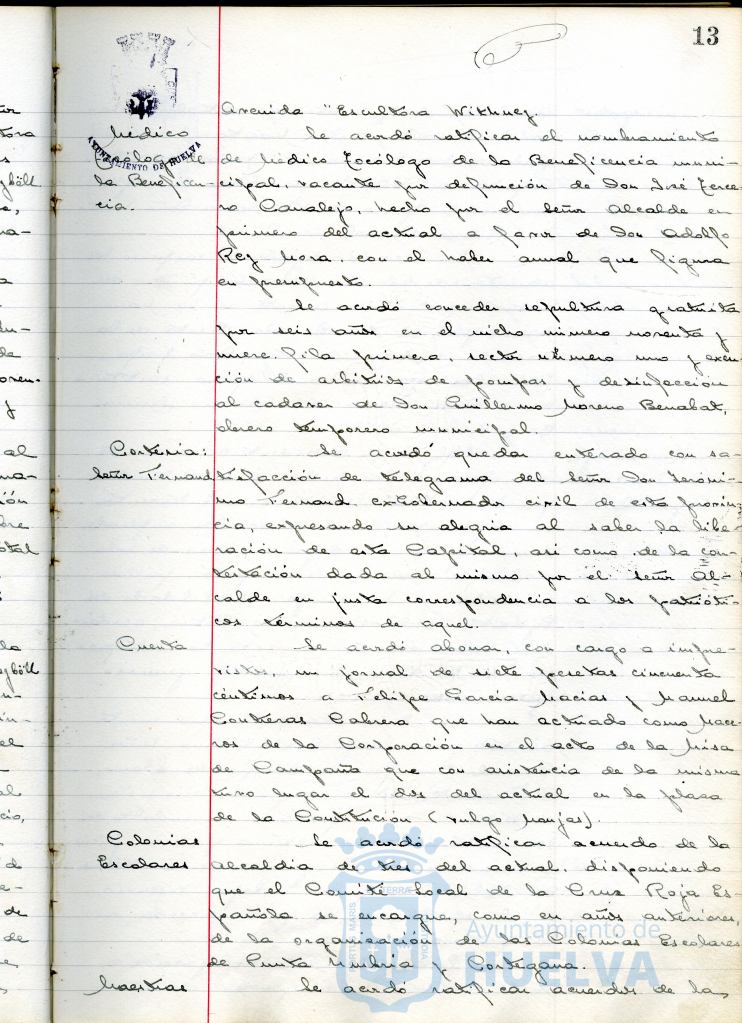 13
Avenida "Escultora Withney.
Médico
Tocólogo de
la Beneficen-
cia.
AYUNTAMIENTO DE HUELVA
Se acordó ratificar el nombramiento
de Médico Tocólogo de la Beneficencia muni-
cipal, vacante por defunción de Don José Terce-
ro Canalejo, hecho por el señor Alcalde en
primero del actual a favor de Don Adolfo
Rey Mora, con el haber anual que figura
en presupuesto.
Se acordó conceder sepultura gratuita
por seis años en el nicho número noventa y
nueve, fila primera, sector número uno y exen-
ción de arbitrios de pompas y desinfección
al cadaver de Don Guillermo Moreno Benabat,
obrero temporero municipal.
Cortesia:
Señor Fernand
Se acordó quedar enterado con sa-
tisfacción de telegrama del señor Don Jeróni-
mo Fernand, exGobernador civil de esta provin-
cia, expresando su alegria al saber la libe-
ración de esta Capital, asi como de la con-
testación dada al mismo por el señor Al-
calde en justa correspondencia a los patrióti-
cos términos de aquel.
Cuenta
Se acordó abonar, con cargo a impre-
vistos, un jornal de siete pesetas cincuenta
céntimos a Felipe García Macías y Manuel
Contreras Cabrera que han actuado como Mace-
ros de la Corporación en el acto de la Misa
de Campaña que con asistencia de la misma
tuvo lugar el dos del actual en la plaza
de la Constitución (vulgo Monjas).
Colonias
Escolares
Se acordó ratificar acuerdo de la
alcaldia de tres del actual, disponiendo
que el Comité Local de la Cruz Roja Es-
pañola se encargue, como en años anteriores,
de la organización de las Colonias Escolares
de Punta Umbria y Cortegana.
Maestras
Se acordó ratificar acuerdos de la
Ayuntamiento de
HUELVA